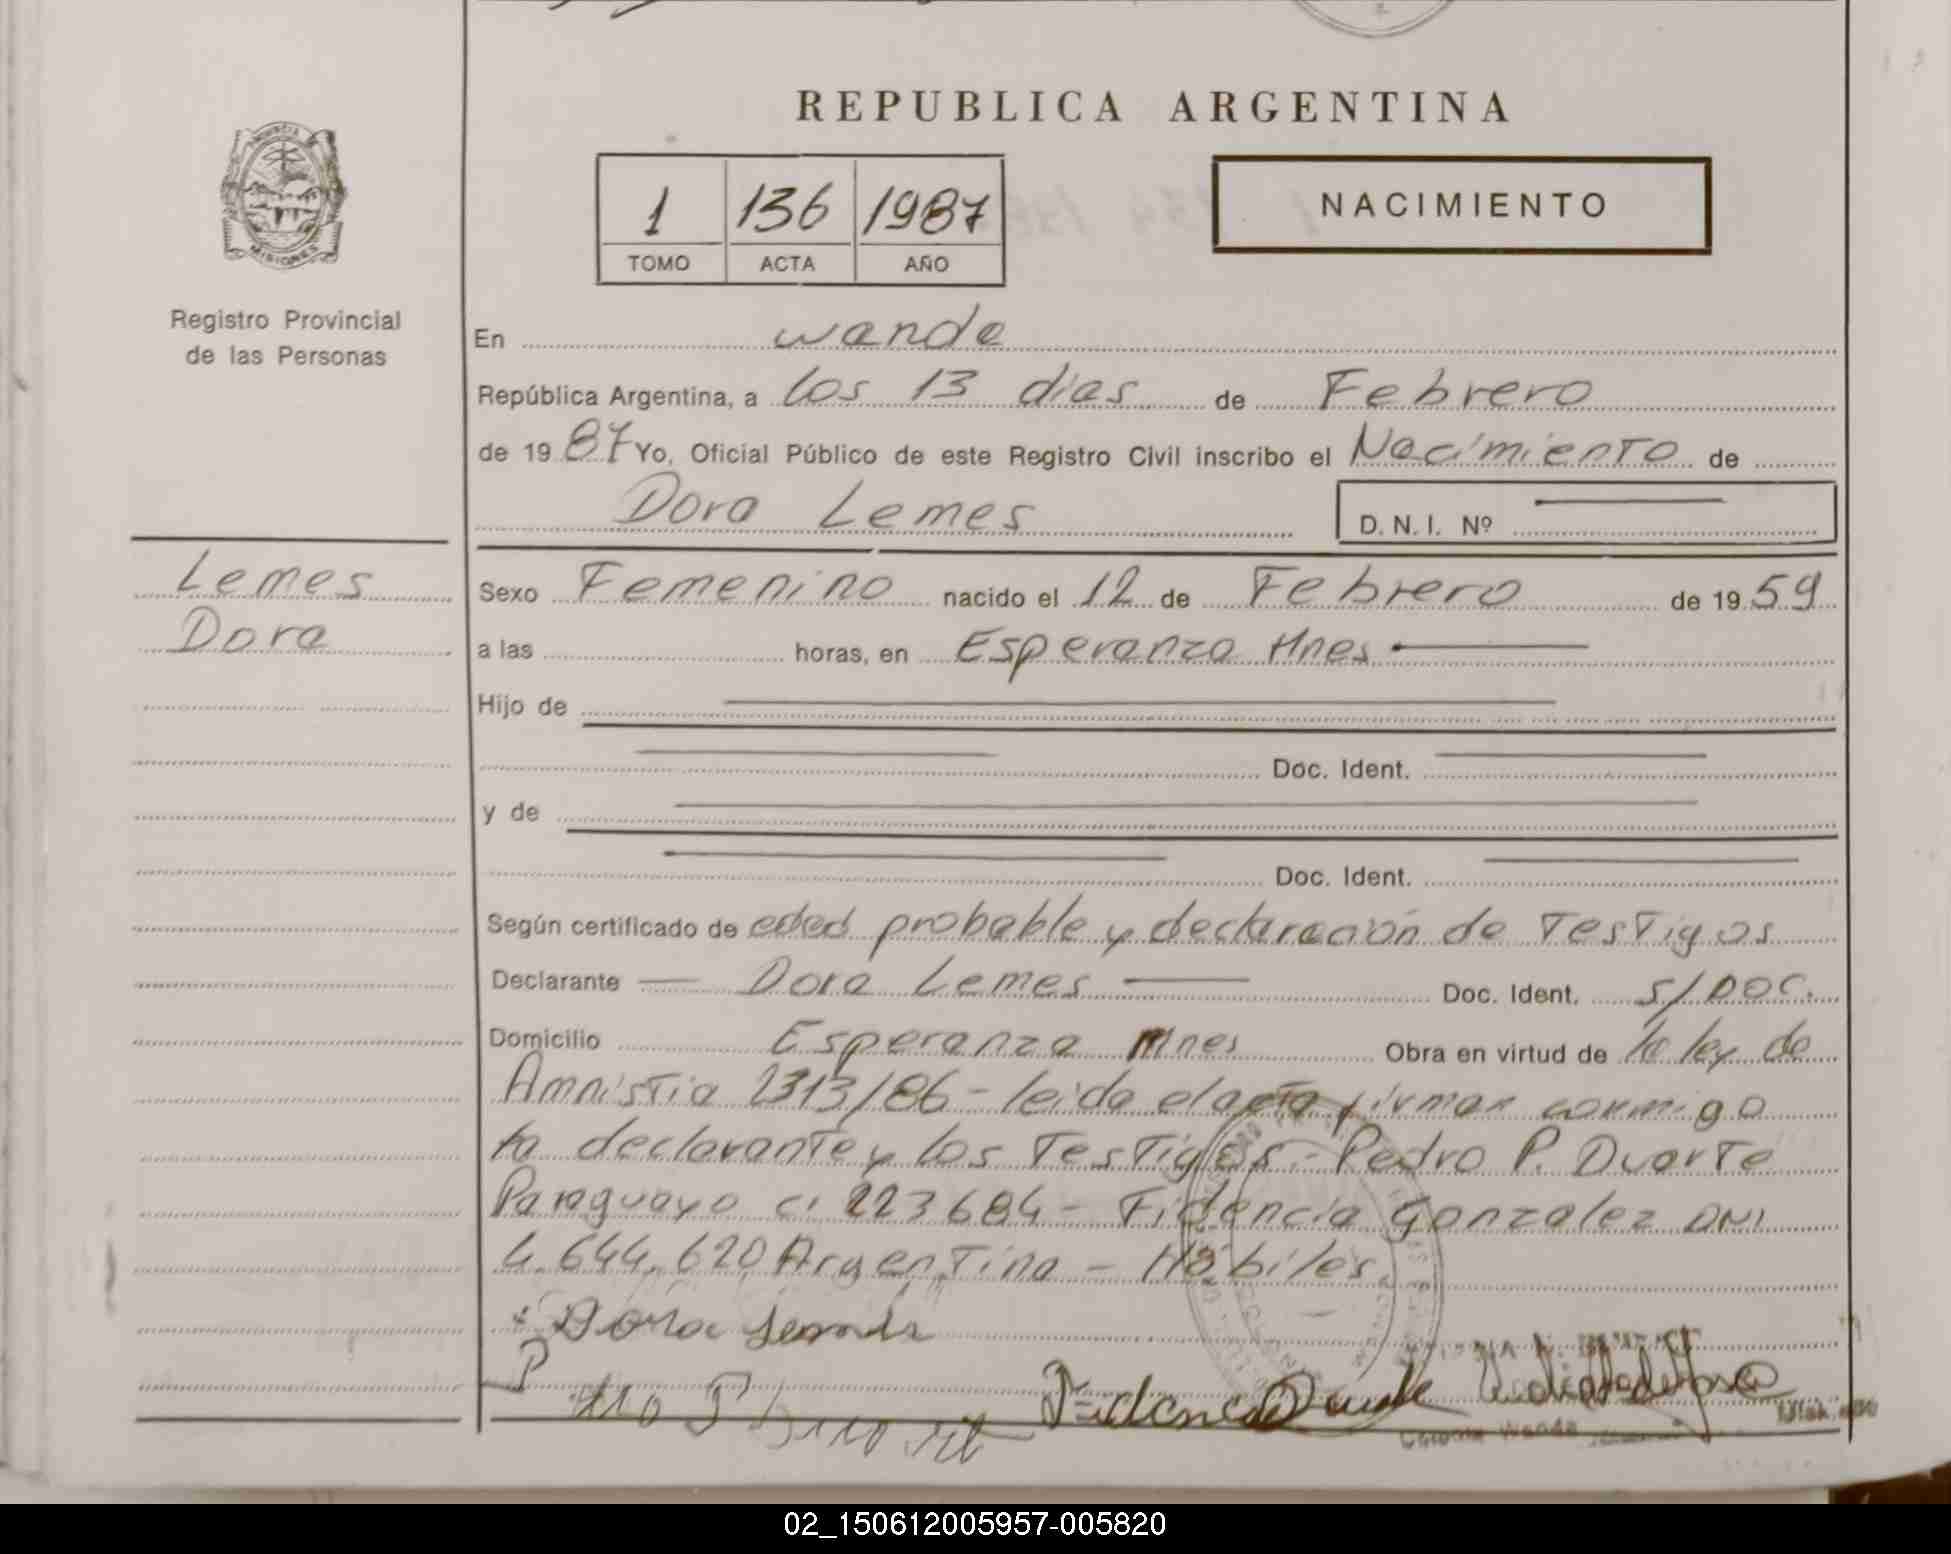 REPUBLICA ARGENTINA
PROVINCIA
MISIONES
Registro Provincial
de las Personas
1 136 1987
TOMO ACTA AÑO
NACIMIENTO
En Wanda
República Argentina, a los 13 dias de Febrero
de 1987 Yo, Oficial Público de este Registro Civil inscribo el Nacimiento de
Dora Lemes
D. N. I. Nº
Lemes
Dora
Sexo Femenino nacido el 12 de Febrero de 1959
a las horas, en Esperanza Mnes
Hijo de
Doc. Ident.
y de
Doc. Ident.
Según certificado de edad probable y declaración de Testigos
Declarante — Dora Lemes — Doc. Ident. S/DOC.
Domicilio Esperanza Mnes Obra en virtud de la ley de
Amnistia 2313/86 - leida el acta firman conmigo
la declarante y los Testigos - Pedro P. Duarte
Paraguayo ci 223684 - Fidencia Gonzalez DNI
4.644.620 Argentina - Hábiles
Dora Lemes
02_150612005957-005820